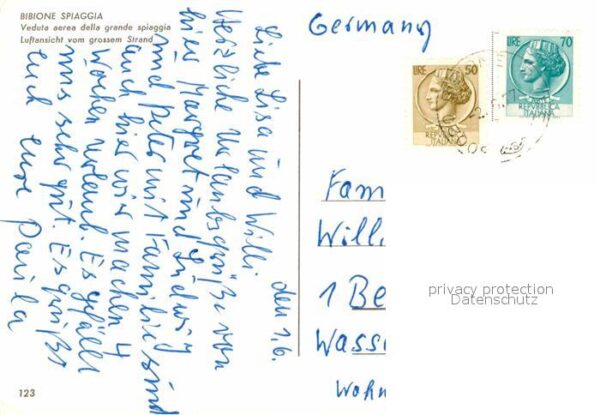 BIBIONE SPIAGGIA
Veduta aerea della grande spiaggia
Luftansicht vom grossem Strand
den 1.6.
Liebe Lisa und Willi
Herzliche Urlaubsgrüße von
hier Margret und Ludwig
und Peter mit Familie sind
auch hier wir machen 4
Wochen Urlaub. Es gefällt
uns sehr gut. Es grüßt
euch eure Paula
123
Germany
LIRE 50
REPVBBLICA
ITALIANA
LIRE 70
REPVBBLICA
ITALIANA
Fam
Will
1 Be
Wass
Wohn
privacy protection
Datenschutz